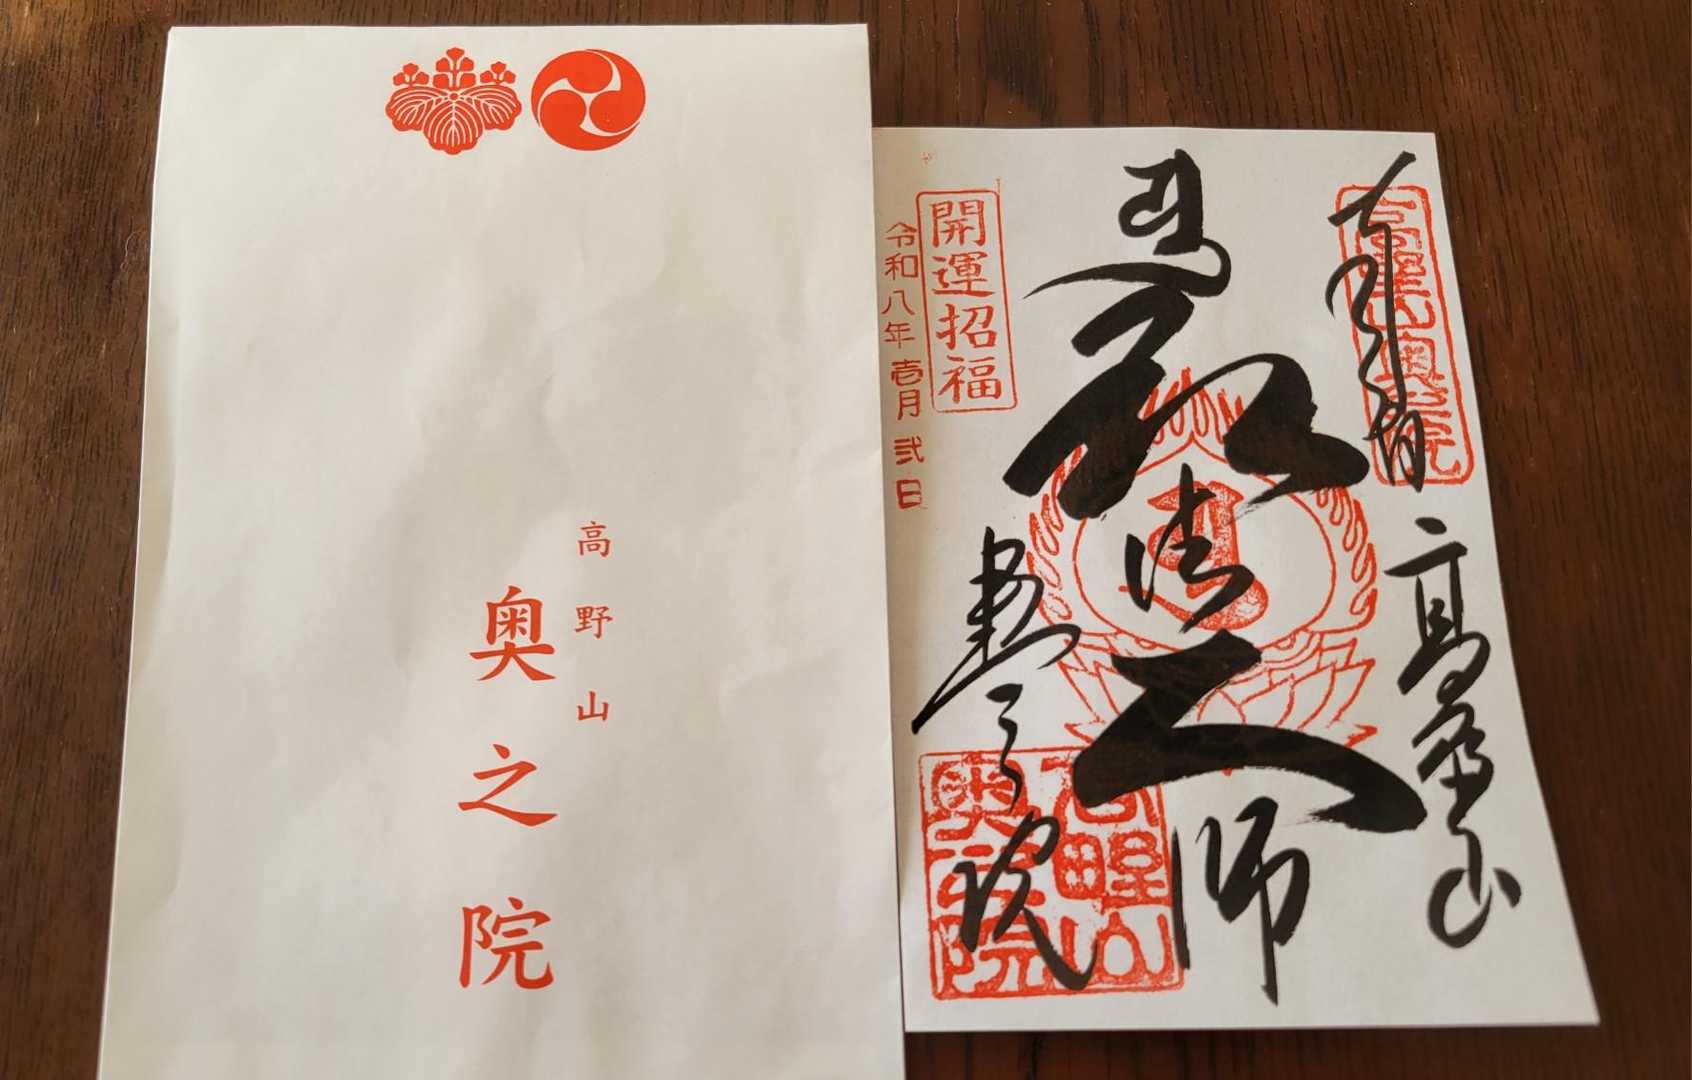 高野山
奥之院
高野山
弘法大師
奥之院
高野山
奥之院
開運招福
令和八年壱月弐日